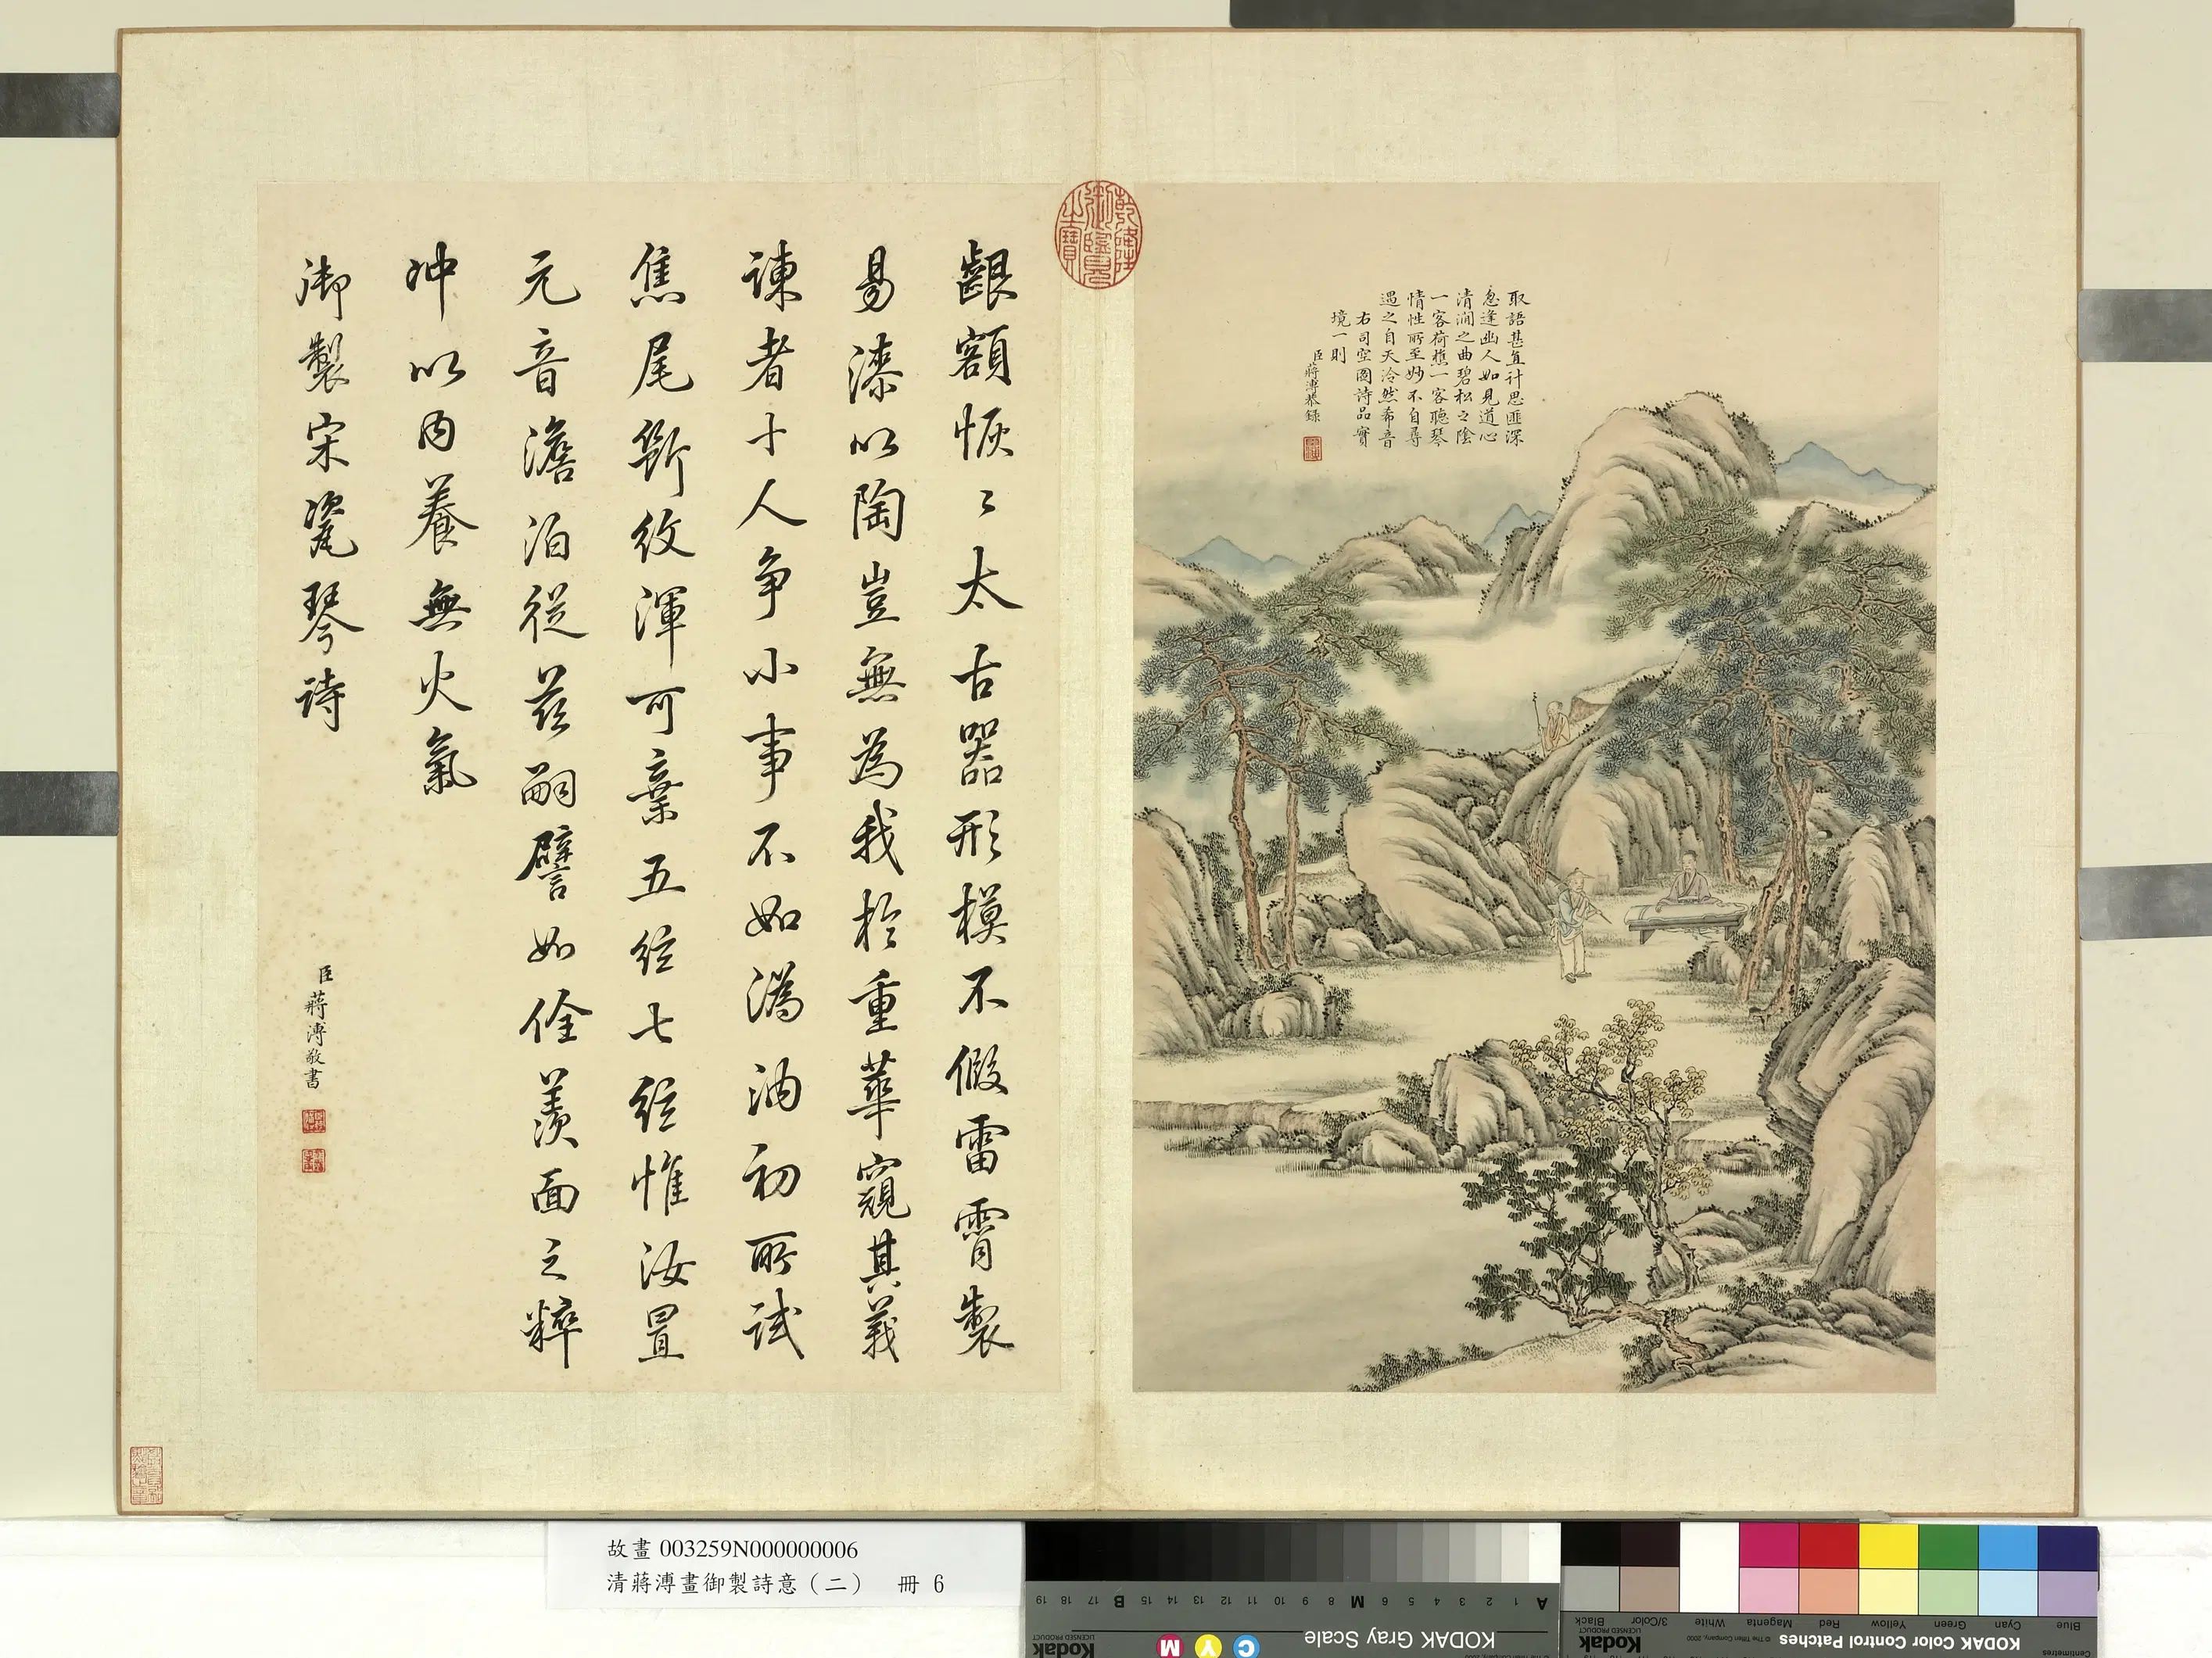 取語甚直計思匪深
忽逢幽人如見道心
清澗之曲碧松之陰
一客荷樵一客聽琴
情性所至妙不自尋
遇之自天泠然希音
右司空圖詩品實
境一則
臣蔣溥恭錄
乾隆御覽之寶
齦額恢〻太古器形模不假雷霄製
易漆以陶豈無為我於重華窺其義
諫者十人爭小事不如溈汭初所試
焦尾斷紋渾可棄五絃七絃惟汝置
元音澹泊從茲嗣譬如佺羨面之粹
冲以內養無火氣
御製宋瓷琴詩
臣蔣溥敬書
故畫 003259N000000006
清蔣溥畫御製詩意（二） 冊 6
A 1 2 3 4 5 6 M 8 9 10 11 12 13 14 15 B 17 18 19
KODAK Gray Scale
C Y M
Kodak
LICENSED PRODUCT
Blue Cyan Green Yellow Red Magenta White 3/Color Black
Centimetres
KODAK Color Control Patches
© The Tiffen Company, 2000
Kodak
LICENSED PRODUCT